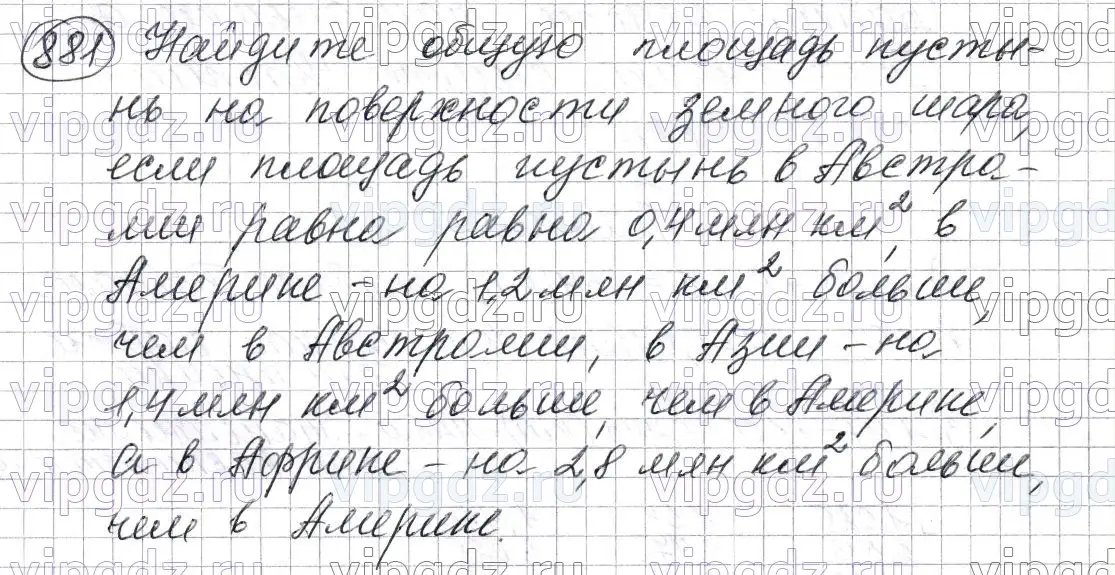 881 Найдите общую площадь пусты-
нь на поверхности земного шара,
если площадь пустынь в Австра-
лии равна равна 0,4 млн км², в
Америке - на 1,2 млн км² больше,
чем в Австралии, в Азии - на
1,4 млн км² больше, чем в Америке,
а в Африке - на 2,8 млн км² больше,
чем в Америке.
vipgdz.ru